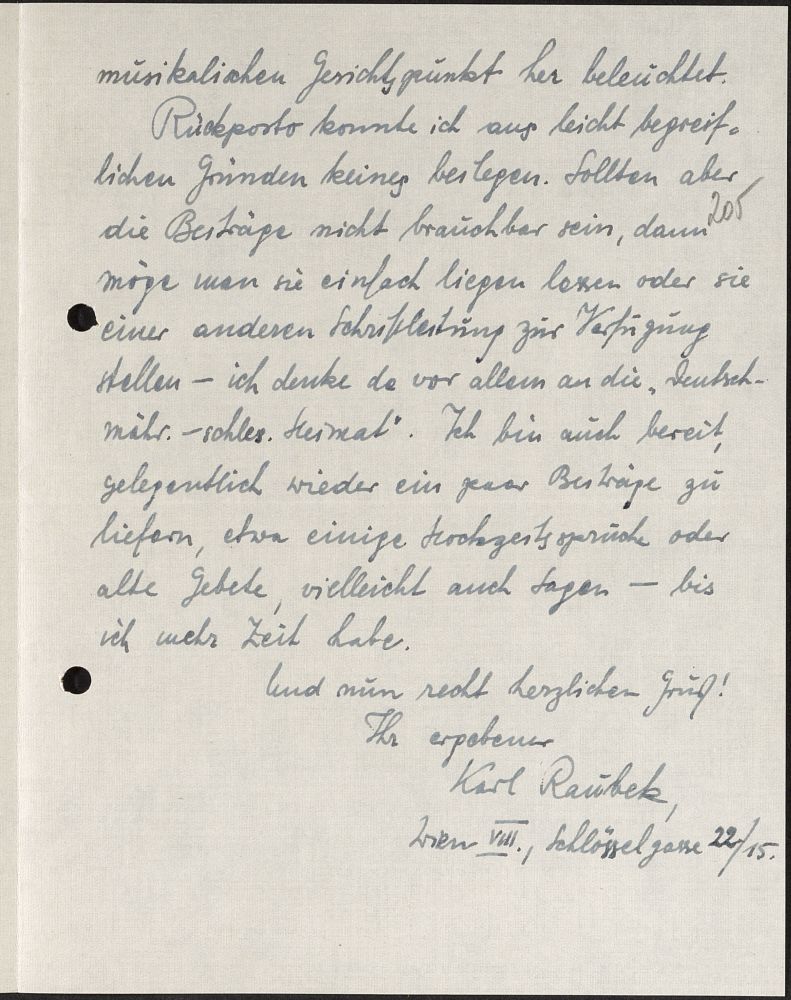 musikalischen Gesichtspunkt her beleuchtet.
Rückporto konnte ich aus leicht begreif-
lichen Gründen keines beilegen. Sollten aber
205
die Beiträge nicht brauchbar sein, dann
möge man sie einfach liegen lassen oder sie
einer anderen Schriftleitung zur Verfügung
stellen – ich denke da vor allem an die „Deutsch-
mähr.-schles. Heimat". Ich bin auch bereit,
gelegentlich wieder ein paar Beiträge zu
liefern, etwa einige Hochzeitssprüche oder
alte Gebete, vielleicht auch Sagen – bis
ich mehr Zeit habe.
Und nun recht herzlichen Gruß!
Ihr ergebener
Karl Raubek,
Wien VIII., Schlösselgasse 22/15.